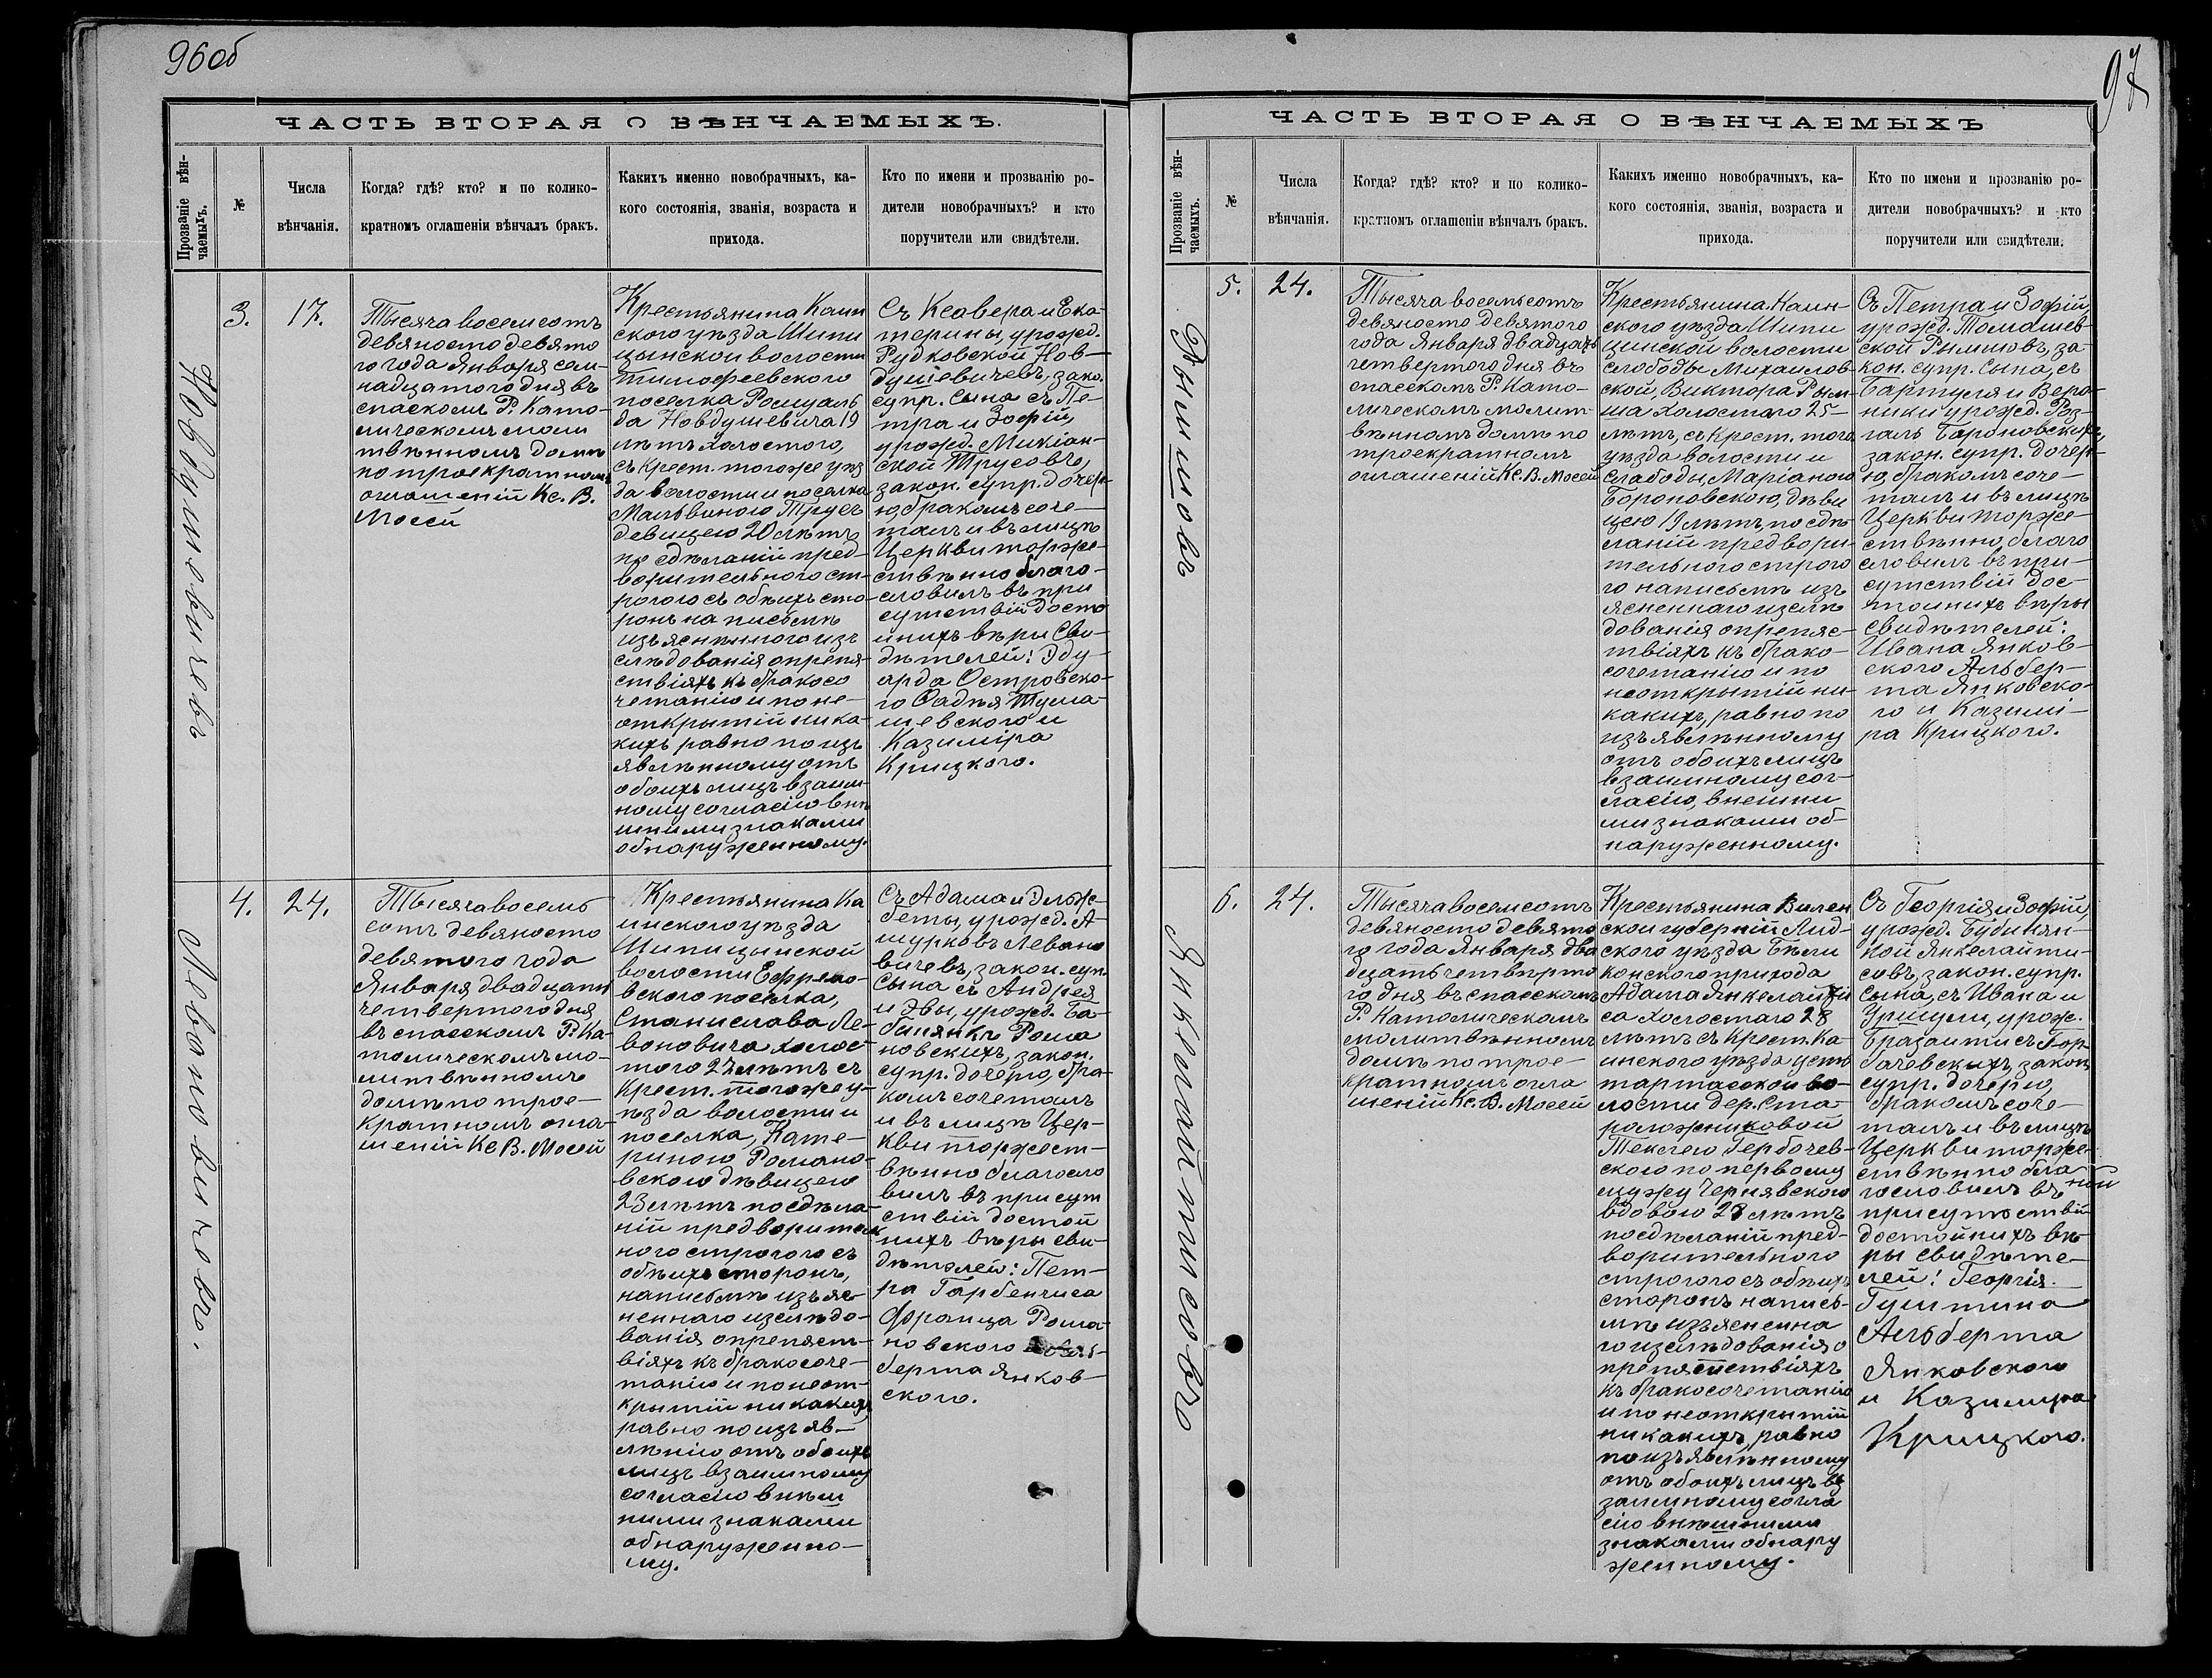 96об
ЧАСТЬ ВТОРАЯ О ВѢНЧАЕМЫХЪ.
Прозваніе вѣн-
чаемыхъ.
№
Числа
вѣнчанія.
Когда? гдѣ? кто? и по колико-
кратномъ оглашеніи вѣнчалъ бракъ.
Какихъ именно новобрачныхъ, ка-
кого состоянія, званія, возраста и
прихода.
Кто по имени и прозванію ро-
дители новобрачныхъ? и кто
поручители или свидѣтели.
Новдушевичевъ
3.
17.
Тысяча восемсотъ
девяносто девято
го года Января сем-
надцатого дня въ
спаскомъ Р. Като-
лическомъ моли
твѣнномъ домѣ
по троекратномъ
оглашеній Кс. В.
Моссей
Крестьянина Каин
ского уѣзда Шипи
цынской волости
Тимофеевского
поселка Ромуаль
да Новдушевича 19
лѣтъ холостого,
съ Крест. того же уѣз
да волости и поселка
Мальвиною Трусъ
девицею 20 лѣтъ
по сдѣланій пред-
ворительного ст-
рогого съ обѣихъ сто-
ронъ на письмѣ
изъяснѣнного изъ
слѣдованія о препя-
ствіяхъ къ бракосо
четанію и по не-
открытій ника-
кихъ равно по изъ
явлѣнному отъ
обоихъ лицъ взаим-
ному согласію внѣ
шними знаками
обнаруженному.
Съ Ксавера и Ека-
терины, урожд.
Рудковской Нов-
душевичевъ, зако.
супр. сына съ Пе-
тра и Зофій,
урожд. Микіан-
ской Трусовъ,
закон. супр. дочер-
ю, бракомъ соче-
талъ и въ лицѣ
Церкви торже-
ствѣнно благо-
словилъ въ при
сутствій досто
йнихъ вѣри сви-
дѣтелей: Эду-
арда Островско-
го Фадѣя Тума-
шевского и
Казиміра
Крицкого.
Левоновичовъ.
4.
24.
Тысяча восемь
сотъ девяносто
девятого года
Января двадцать
четвертого дня
въ спасскомъ Р. Ка-
толическомъ мо-
литвѣнномъ
домѣ по трое-
кратномъ огла-
шеній Кс В. Моссей
Крестьянина Ка
инского уѣзда
Шипицынской
волости Ефремо-
вского поселка,
Станислава Ле-
воновича холос-
того 22 лѣтъ съ
Крест. того же у-
ѣзда волости и
поселка, Кате-
риною Романо-
вского дѣвицею
23 лѣтъ по сдѣла-
ній предворитель
ного строгого съ
обѣихъ сторонъ,
на письмѣ изъяс-
ненного изслѣдо-
ванія о препяст-
віяхъ къ бракосоче-
танію и по неот-
крытій никакихъ
равно по изъяв-
лѣнію отъ обоихъ
лицъ взаимному
согласію внѣш
ними знаками
обнаруженно-
му.
Съ Адама и Эльж-
беты, урожд. А-
шурковъ Левоно
вичевъ, закон. суп.
Сына съ Андрея
и Эвы, урожд. Ба-
бинянкъ Рома
новскихъ, закон.
супр. дочерю, бра-
комъ сочеталъ
и въ лицѣ Цер-
кви торжест-
вѣнно благосло
вилъ въ присут
ствій достой
нихъ вѣры сви-
дѣтелей: Пет-
ра Гарбенчиса
Франца Рома-
новского
берта Янков-
ского.
97
ЧАСТЬ ВТОРАЯ О ВѢНЧАЕМЫХЪ
Прозваніе вѣн-
чаемыхъ.
№
Числа
вѣнчанія.
Когда? гдѣ? кто? и по колико-
кратномъ оглашеніи вѣнчалъ бракъ.
Какихъ именно новобрачныхъ, ка-
кого состоянія, званія, возраста и
прихода.
Кто по имени и прозванію ро-
дители новобрачныхъ? и кто
поручители или свидѣтели.
Рымшовъ
5.
24.
Тысяча восемьсотъ
девяносто девятого
года Января двадцать
четвертого дня въ
спасскомъ Р. Като-
лическомъ молит-
вѣнномъ домѣ по
троекратномъ
оглашеній Кс. В. Моссей
Крестьянина. Каин-
ского уѣзда Шипи
цинской волости
слободы Михайлов-
ской, Виктора Рым-
ша холостого 25-
лѣтъ, съ Крест. того
уѣзда волости и
слободы, Маріаною
Бороновскою, дѣви
цею 19 лѣтъ, по сдѣ-
ланій предвори-
тельного строго
го написьмѣ изъ
ясненнаго изслѣ
дованія о препяс-
твіяхъ къ брако-
сочетанію и по
неоткрытій ни-
какихъ, равно по
изъявлѣнному
отъ обоихъ лицъ
взаимному сог-
ласію, внешни
ми знаками об-
наруженному.
Съ Петра и Зофій,
урожд. Томашев-
ской Рымшовъ, за-
кон. супр. сына, съ
Бартуля и Веро-
ники урожд. Роз-
галь Бороновскихъ,
закон. супр. дочер-
ю, бракомъ соче-
талъ и въ лицѣ
Церкви торже-
ствѣнно, благо
словилъ въ при-
сутствій дос-
тоинихъ вѣры
свидѣтелей:
Ивана Янков-
ского Альбер-
та Янковско-
го и Казимі-
ра Крицкого.
Янкелайтисовъ
6.
24.
Тысяча восемсотъ
девяносто девято
го года Января два
дцать четвѣрто
го дня въ спасскомъ
Р. Католическомъ
молитвѣнномъ
домѣ по трое-
кратномъ огла
шеній Кс. В. Моссей
Крестьянина Вилен
ской губерній Лид-
ского уѣзда Бѣли
конского прихода
Адама Янкелайти
са холостого 28
лѣтъ съ Крест. Ка-
инского уѣзда усть
тартасской во-
лости дер. Ста-
роложниковой
Теклею Гербочев-
скою по первому
мужу Чернявского
вдовою 28 лѣтъ
по сдѣланій пред-
ворительного
строгого съ обѣихъ
сторонъ написъ-
мѣ изъясненна
го изслѣдованія о
препятствіяхъ
къ бракосочетанію
и по неоткрытій
никакихъ, равно
по изъявлѣнному
отъ обоихъ лицъ вз
заимному согла
сію внѣшними
знаками обнару
женному.
Съ Георгія и Зофій,
урожд. Будинян-
кой Янкелайти-
совъ, закон. супр.
Сына, съ Ивана и
Уршули, урож.
Бразайтисъ Гор-
бачевскихъ, закон
супр. дочерю,
бракомъ соче-
талъ и въ лицѣ
Церкви торже-
ствѣнно бла
гословилъ въ
присутствій
достойнихъ вѣ-
ры свидѣте-
лей: Георгія
Гуштина
Альберта
Янковского
и Казимира
Крицкого.